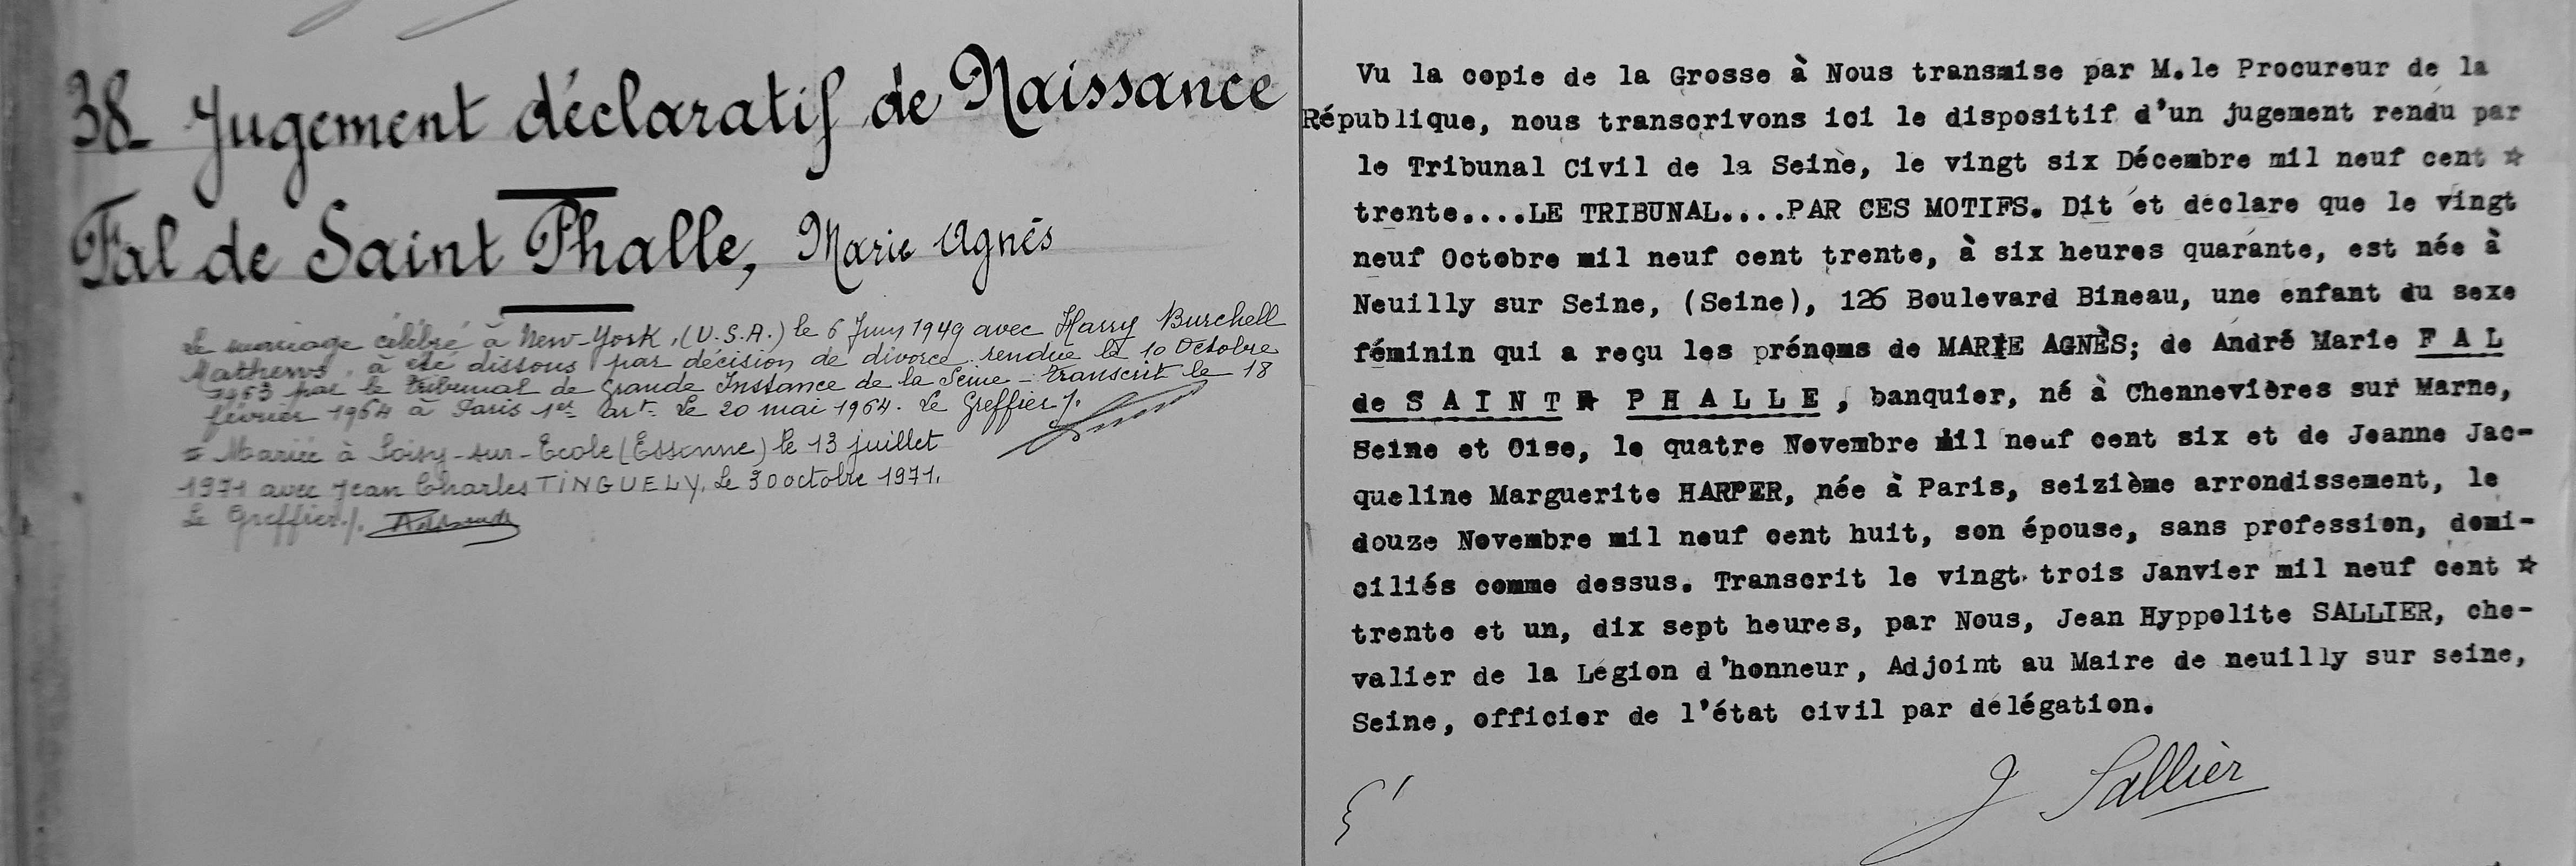 38_ Jugement déclaratif de Naissance
Fal de Saint Phalle, Marie Agnès
Le mariage célébré à New-York, (U.S.A.) le 6 Juin 1949 avec Harry Burchell
Mathews, a été dissous par décision de divorce rendue le 10 Octobre
1963 par le tribunal de Grande Instance de la Seine - transcrit le 18
février 1964 à Paris 1er arrt. Le 20 mai 1964. Le Greffier /.
= Mariée à Soisy-sur-Ecole (Essonne) le 13 juillet
1971 avec Jean Charles TINGUELY. Le 30 octobre 1971.
Le Greffier./.
Vu la copie de la Grosse à Nous transmise par M.le Procureur de la
République, nous transcrivons ici le dispositif d'un jugement rendu par
le Tribunal Civil de la Seine, le vingt six Décembre mil neuf cent ☆
trente....LE TRIBUNAL....PAR CES MOTIFS. Dit et déclare que le vingt
neuf Octobre mil neuf cent trente, à six heures quarante, est née à
Neuilly sur Seine, (Seine), 126 Boulevard Bineau, une enfant du sexe
féminin qui a reçu les prénoms de MARIE AGNÈS; de André Marie F A L
de S A I N T P H A L L E , banquier, né à Chennevières sur Marne,
Seine et Oise, le quatre Novembre mil neuf cent six et de Jeanne Jac-
queline Marguerite HARPER, née à Paris, seizième arrondissement, le
douze Novembre mil neuf cent huit, son épouse, sans profession, domi-
ciliés comme dessus. Transcrit le vingt trois Janvier mil neuf cent ☆
trente et un, dix sept heures, par Nous, Jean Hyppolite SALLIER, che-
valier de la Légion d'honneur, Adjoint au Maire de neuilly sur seine,
Seine, officier de l'état civil par délégation.
J Sallier